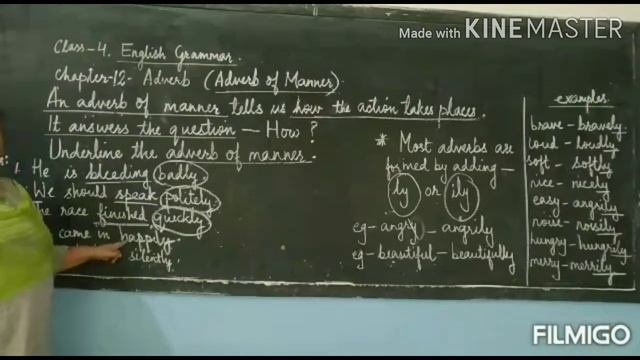 Made with KINEMASTER
Class-4. English Grammar.
Chapter-12- Adverb (Adverb of Manner)
An adverb of manner tells us how the action takes places.
It answers the question - How?
Underline the adverb of manner.
1. He is bleeding badly.
We should speak politely.
The race finished quickly
came in happily
silently
* Most adverbs are
formed by adding -
ly or ily
eg - angry - angrily
eg - beautiful - beautifully
examples
brave - bravely
loud - loudly
soft - softly
nice - nicely
easy - angrily
noise - noisily
hungry - hungrily
merry - merrily
FILMIGO